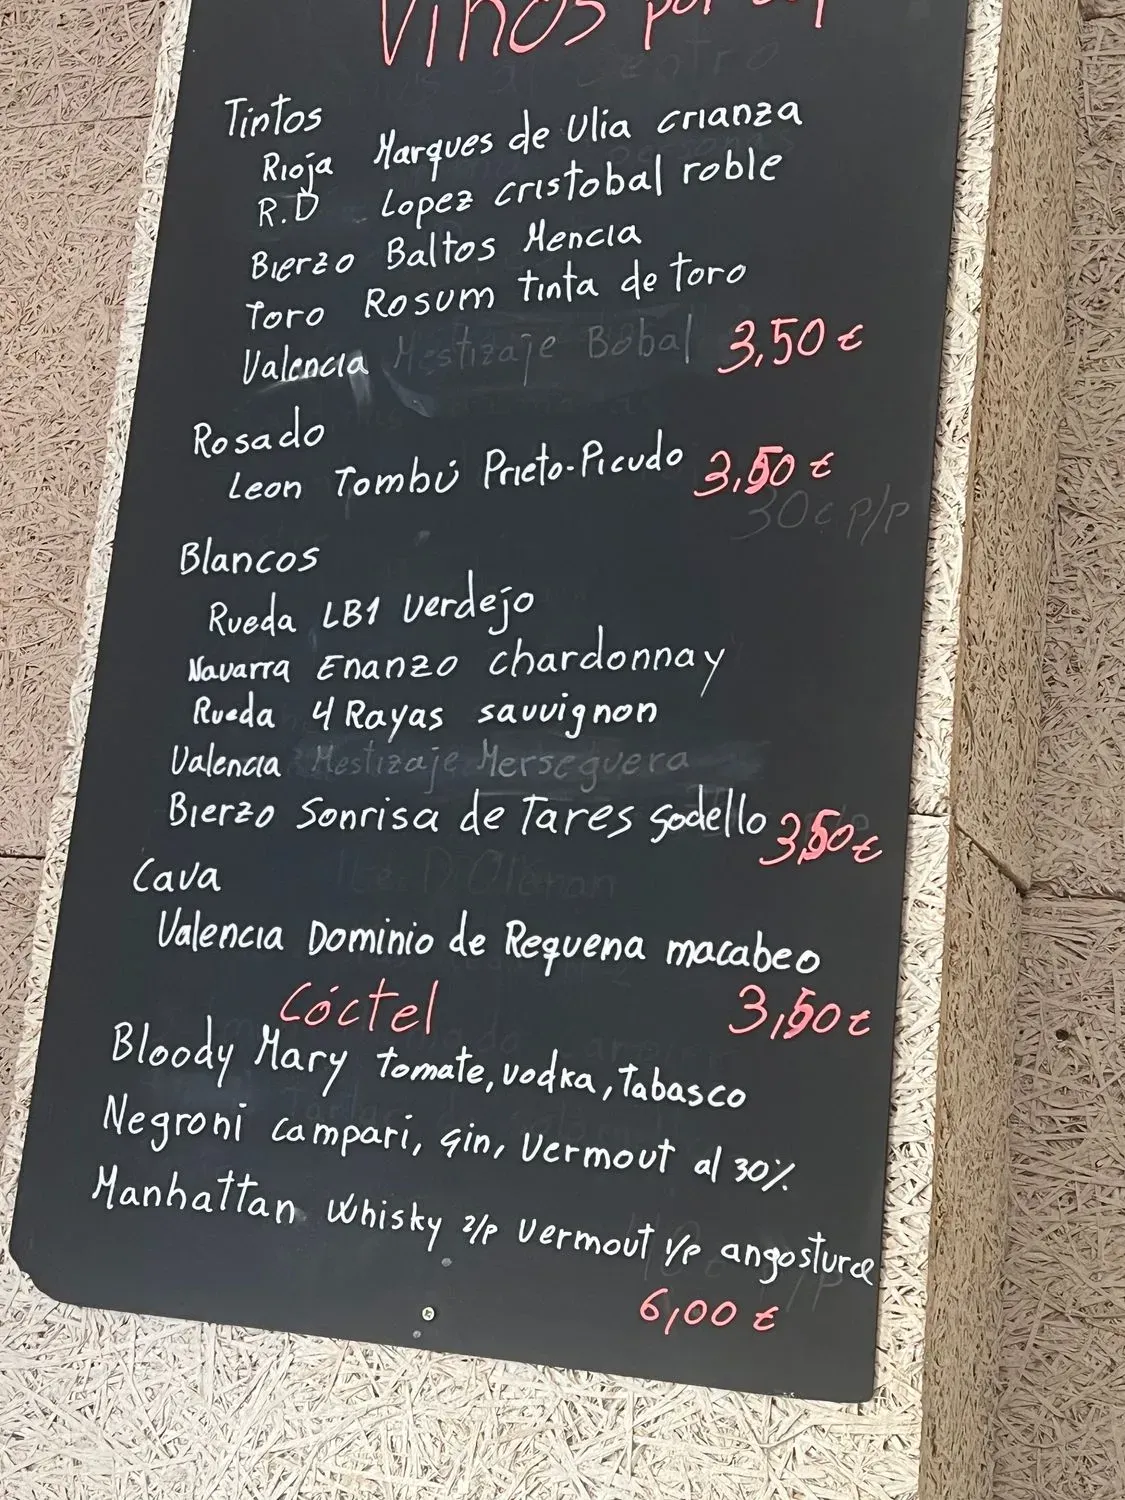 Vinos por
Tintos
Rioja Marques de Ulia crianza
R.D Lopez cristobal roble
Bierzo Baltos Mencia
Toro Rosum tinta de toro
Valencia Mestizaje Bobal 3,50 €
Rosado
Leon Tombú Prieto-Picudo 3,50 €
30c p/p
Blancos
Rueda LB1 Verdejo
Navarra Enanzo chardonnay
Rueda 4 Rayas sauvignon
Valencia Mestizaje Merseguera
Bierzo Sonrisa de Tares godello 3,50 €
Cava
Valencia Dominio de Requena macabeo
Cóctel 3,50 €
Bloody Mary tomate, vodka, Tabasco
Negroni campari, gin, Vermout al 30%
Manhattan Whisky 2/p Vermout 1/p angostura
6,00 €